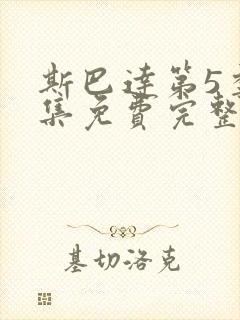 斯巴達第5
集免費完整
基切洛克